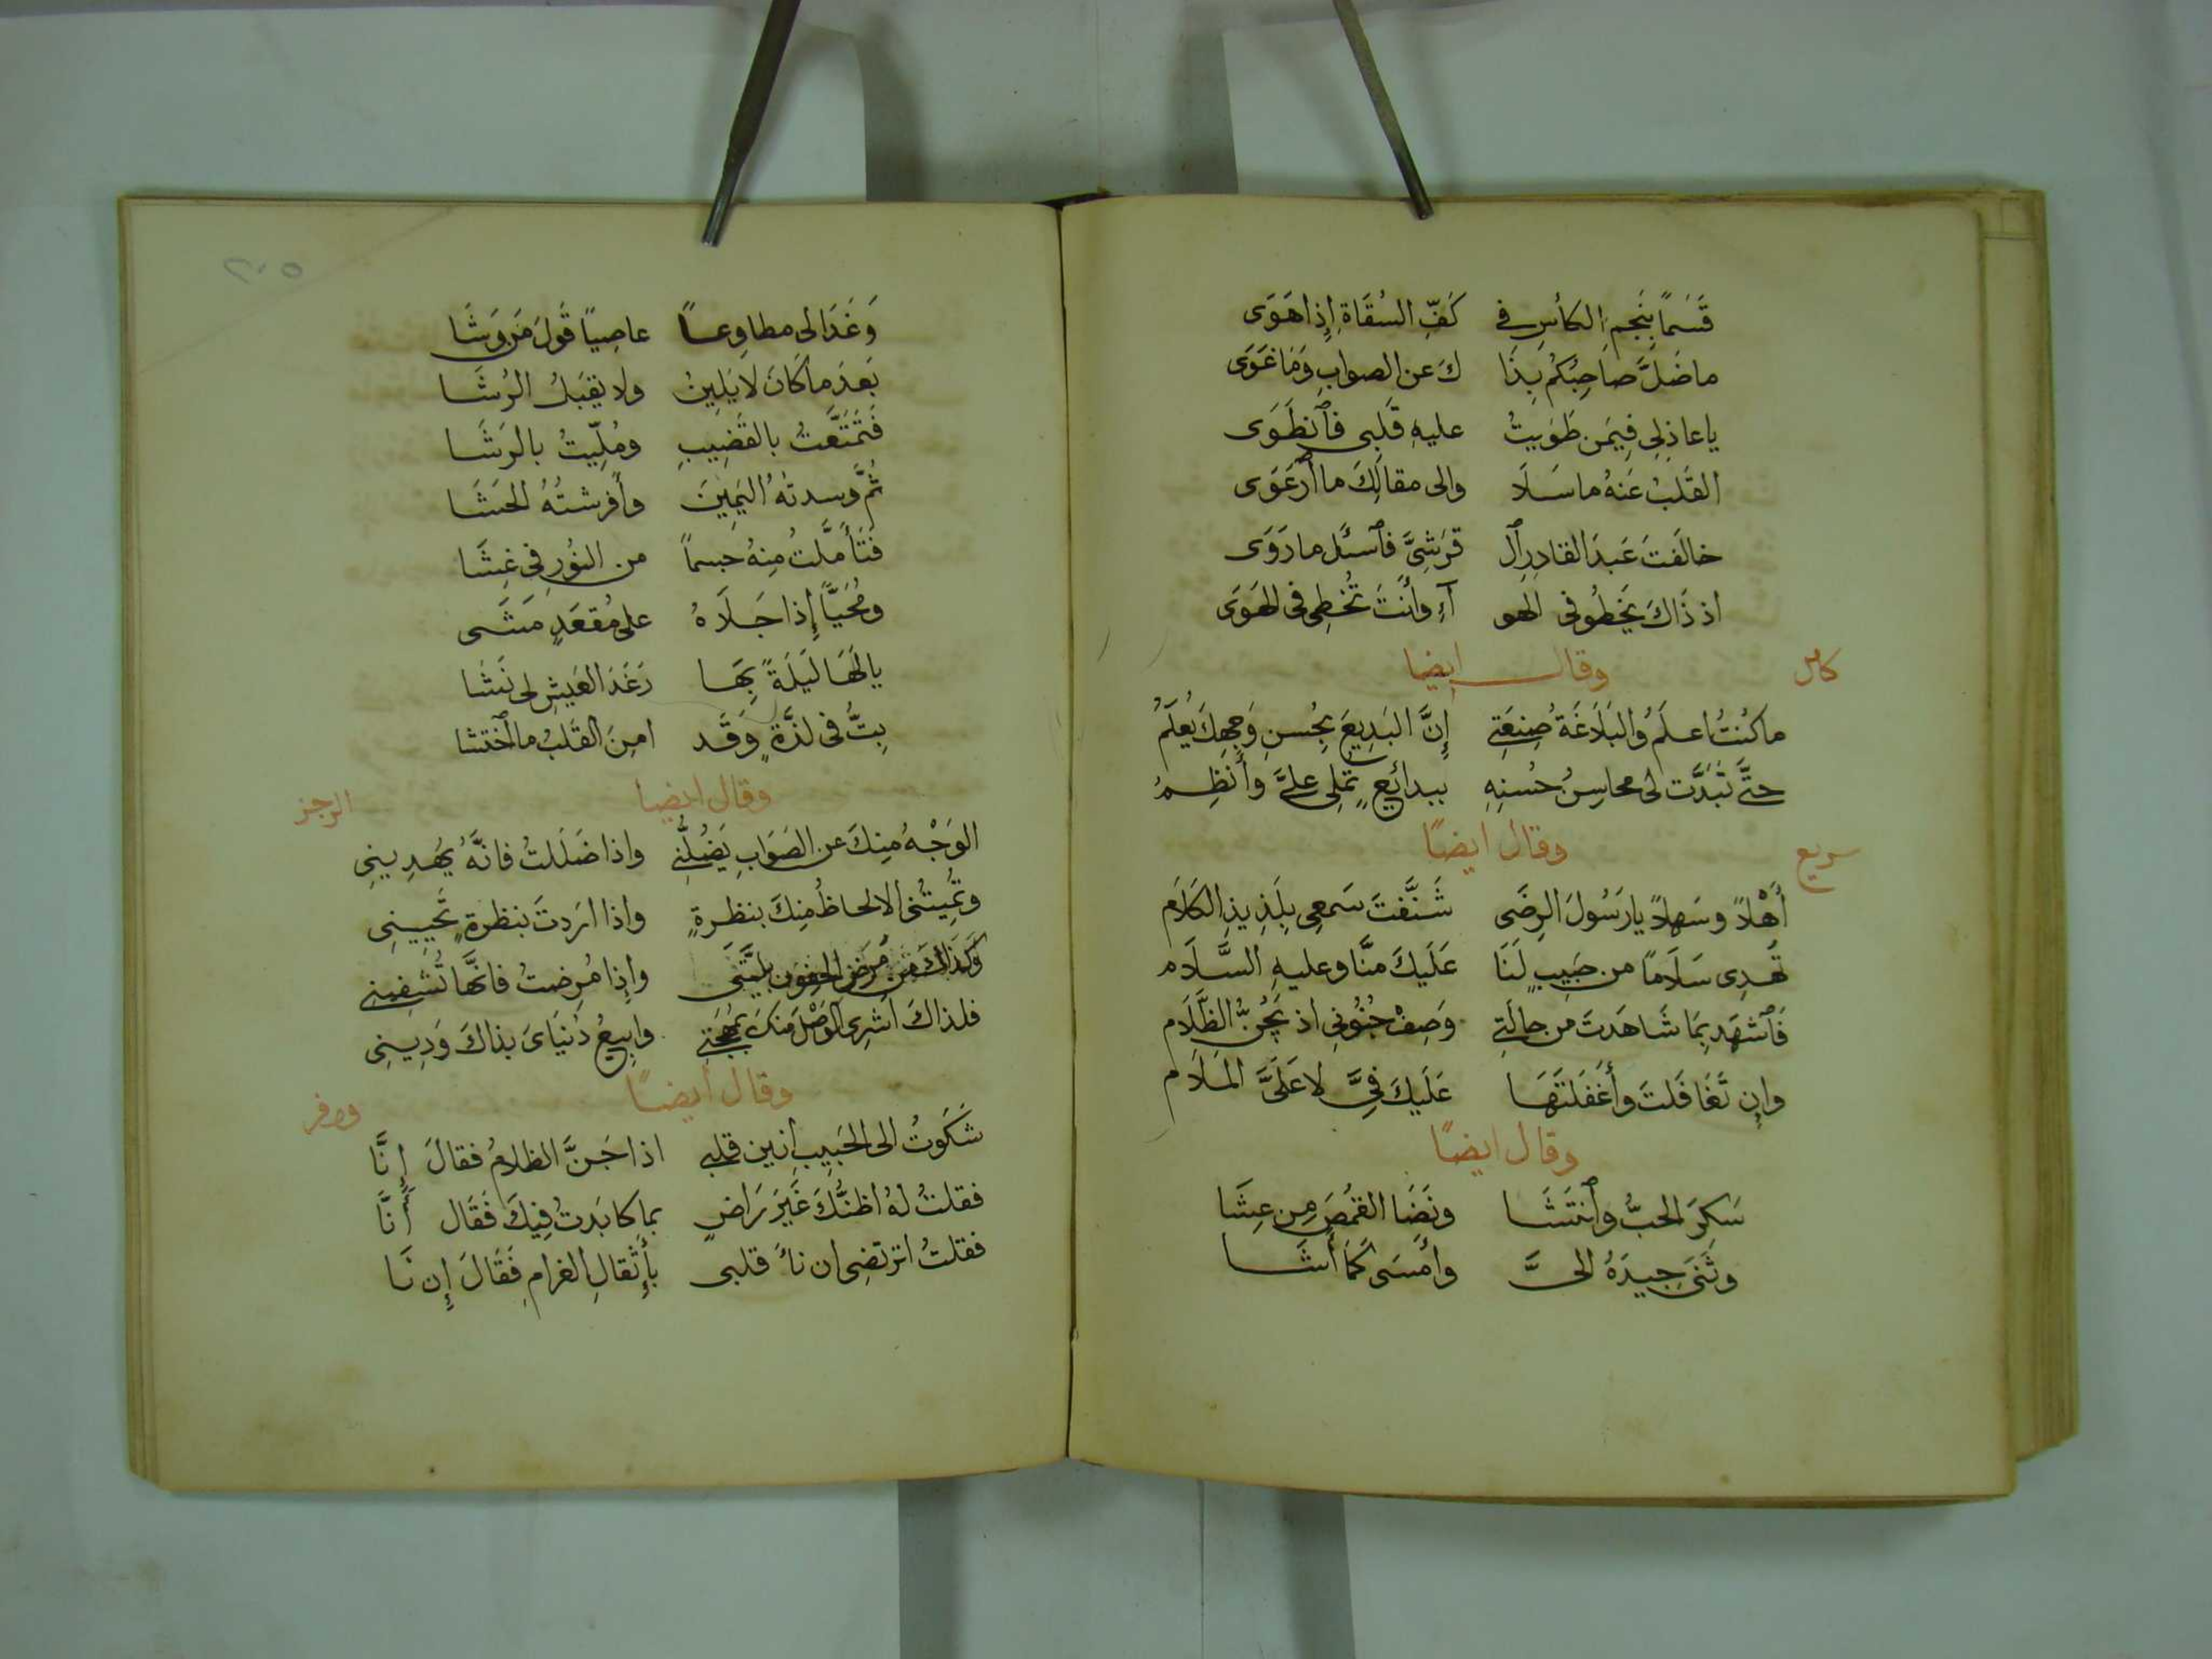 قَسَمًا بِنَجمِ الكأسِ في كَفِّ السُقَاةِ إِذا هَوَى
ما ضَلَّ صاحِبُكُم بِذَا كَ عن الصوابِ وَمَا غَوَى
يا عاذِلي فِيمَن طَوَيتُ عليهِ قَلبي فٱنطَوَى
القَلبُ عَنهُ ما سَلَا والى مقالِكَ ما ٱرعَوَى
خالَفتَ عَبدَ القادِرِ ٱل قرَشِيَّ فٱسئَل ما رَوَى
اذ ذَاكَ يَخطُو في الهو آءِ وأَنتَ تُخطِي في الهَوَى
كامل
وقال ايضا
ما كُنتُ اعلَمُ وَالبَلَاغَةُ صِنعَتِي إِنَّ البَدِيعَ بِحُسنِ وَجهِكَ يُعلَمُ
حتَّى تَبَدَّت لي محاسِنُ حُسنِهِ ببدائعٍ تُملِي عليَّ وأَنظِمُ
سريع
وقال ايضًا
أَهْلاً وسَهلاً يا رَسُولَ الرِضَى شَنَّفتَ سَمعِي بِلَذِيذِ الكَلَام
تُهدِى سَلَامًا من حَبِيبٍ لَنَا عَلَيكَ منَّا وعليهِ السَّلَام
فَٱشهَد بِمَا شَاهَدتَ من حالَتِي وَصِفْ جُنُونِي اذ يَجُنُّ الظَّلَام
وإِن تَغَافَلتَ وأَغفَلتَهَا عَلَيكَ فِيَّ لا عَلَيَّ المَلَام
وقال ايضًا
سَكِرَ الحبُّ وٱنتَشَا ونَضَا القمُصَ مِن عِشَا
وثَنَى جِيدَهُ اليَّ وأَمسَى كَمَا أَشَا
٢٠٥
وَغَدَا لى مطاوِعاً عاصِياً قَولَ مَن وَشَا
بَعدَ ما كَانَ لا يَلِينُ ولا يقبَلُ الرُشَا
فَتَمَتَّعتُ بالقَضِيبِ ومُلِّيتُ بالرَشَا
ثُمَّ وسدتهُ اليَمِينَ وأَفرشتُهُ الحَشَا
فَتَأَمَّلتُ مِنهُ جسماً من النُورِ في غِشَا
ومُحَيّاً إِذا جَلَاهُ على مُقعَدٍ مَشَى
يا لَهَا لَيلَةً بِهَا رَغَدَ العَيشِ لى نَشَا
بِتُّ في لذَّةٍ وَقَد امِنَ القَلبُ ما ٱختشا
وقال ايضا
الرجز
الوَجْهُ مِنكَ عن الصَوَابِ يَضُلُّنِي واذا ضَلَلتُ فانَّهُ يَهدِينِي
وتُمِيتُني الالحاظُ مِنكَ بنظرةٍ واذا ارَدتَ بنظرةٍ تُحيِينِي
وَكَذَاكَ من مَرَضِ الجفون بليَّتي وإِذا مُرِضتُ فانَّها تُشفِيني
فلذاكَ اشرِي الوَصْلَ مِنكَ بمُهجَتِي وابِيعُ دُنيَايَ بذاكَ وَدِينِي
وقال أيضًا
وافر
شَكَوتُ الى الحَبِيبِ انين قلبي اذا جَنَّ الظلامُ فقالَ إِنَّا
فقلتُ لهُ اظنُّكَ غَيرَ رَاضٍ بما كابَدتُ فِيكَ فَقَال أَنَّا
فقلتُ اترتضِي ان ناءَ قلبي بأَثقالِ الغرامِ فَقَالَ إِن نَا